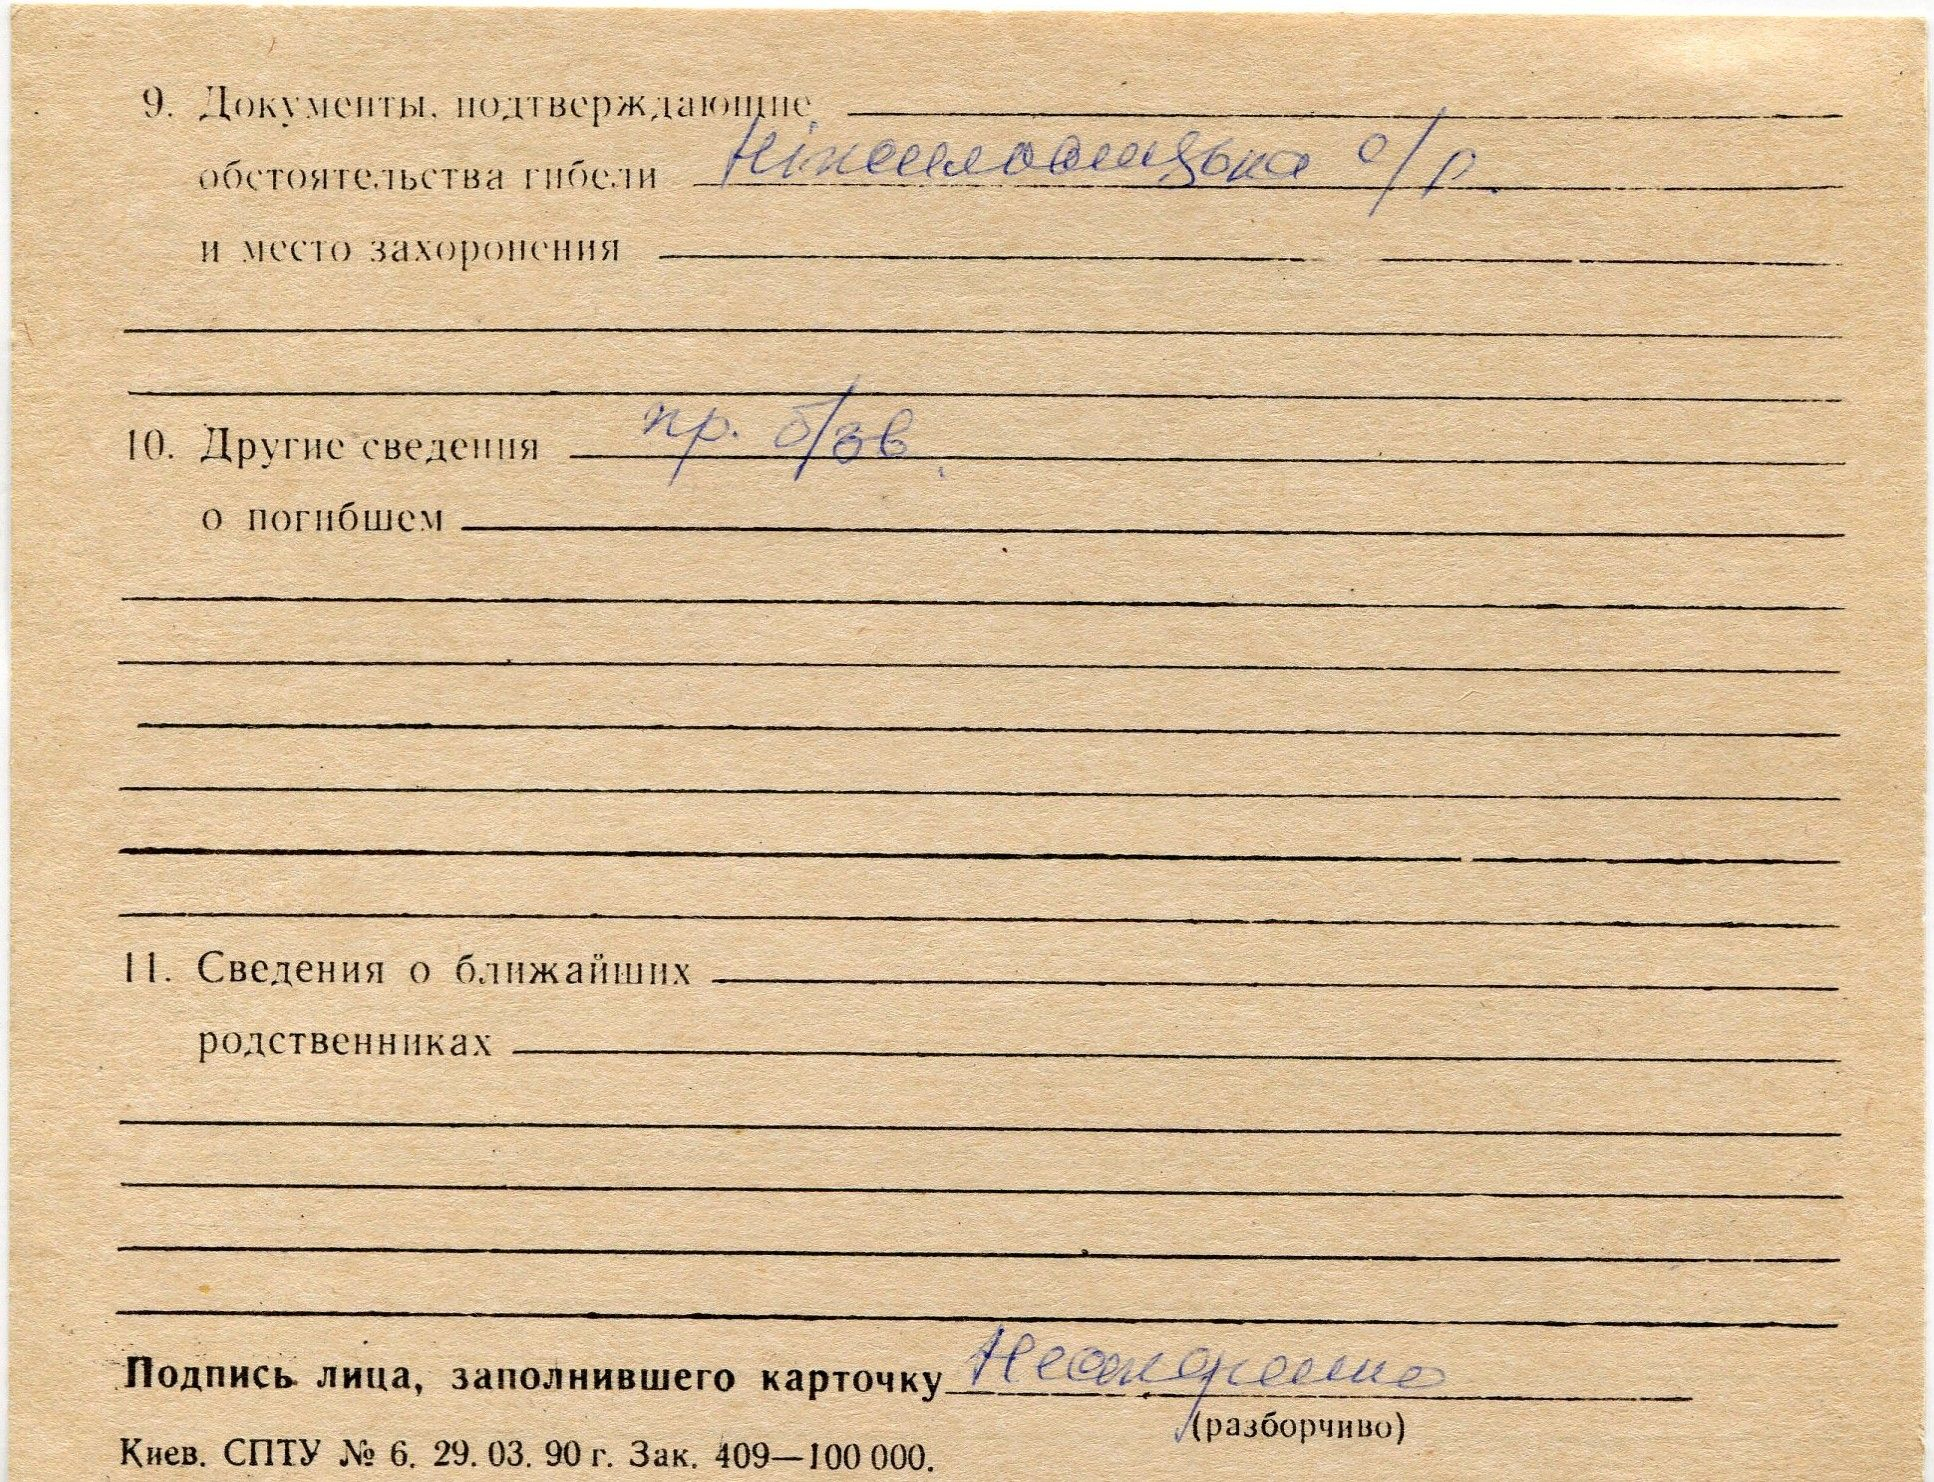 9. Документы, подтверждающие
обстоятельства гибели с/р.
и место захоронения
10. Другие сведения пр. б/зв.
о погибшем
11. Сведения о ближайших
родственниках
Подпись лица, заполнившего карточку
(разборчиво)
Киев. СПТУ № 6. 29. 03. 90 г. Зак. 409—100 000.